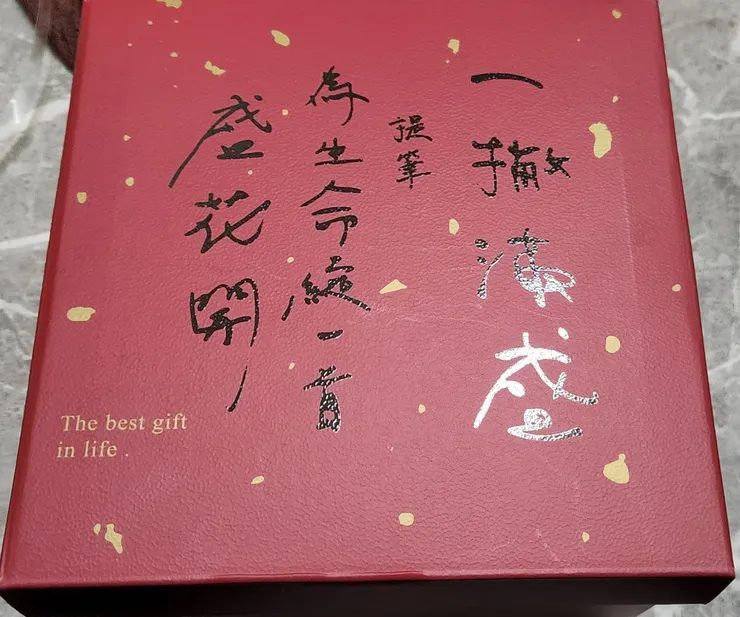 一撇滿盛
提筆
為生命一首
盛花開
The best gift
in life .